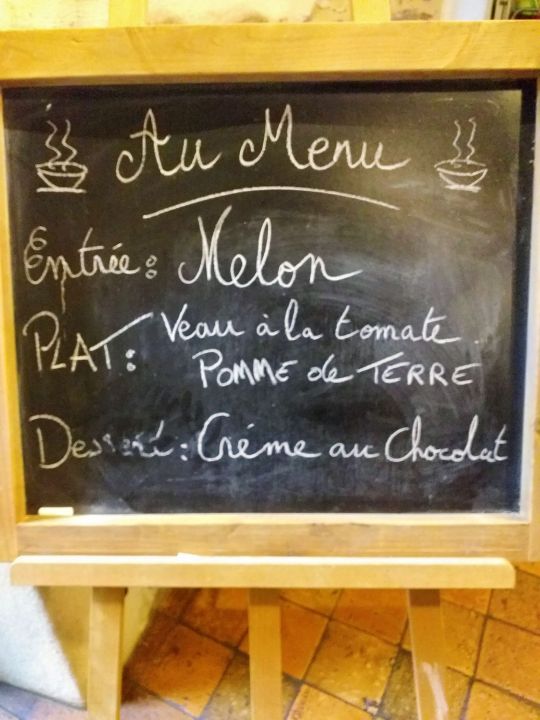 Au Menu
Entrée: Melon
PLAT: Veau à la tomate.
POMME de TERRE
Dessert: Créme au Chocolat